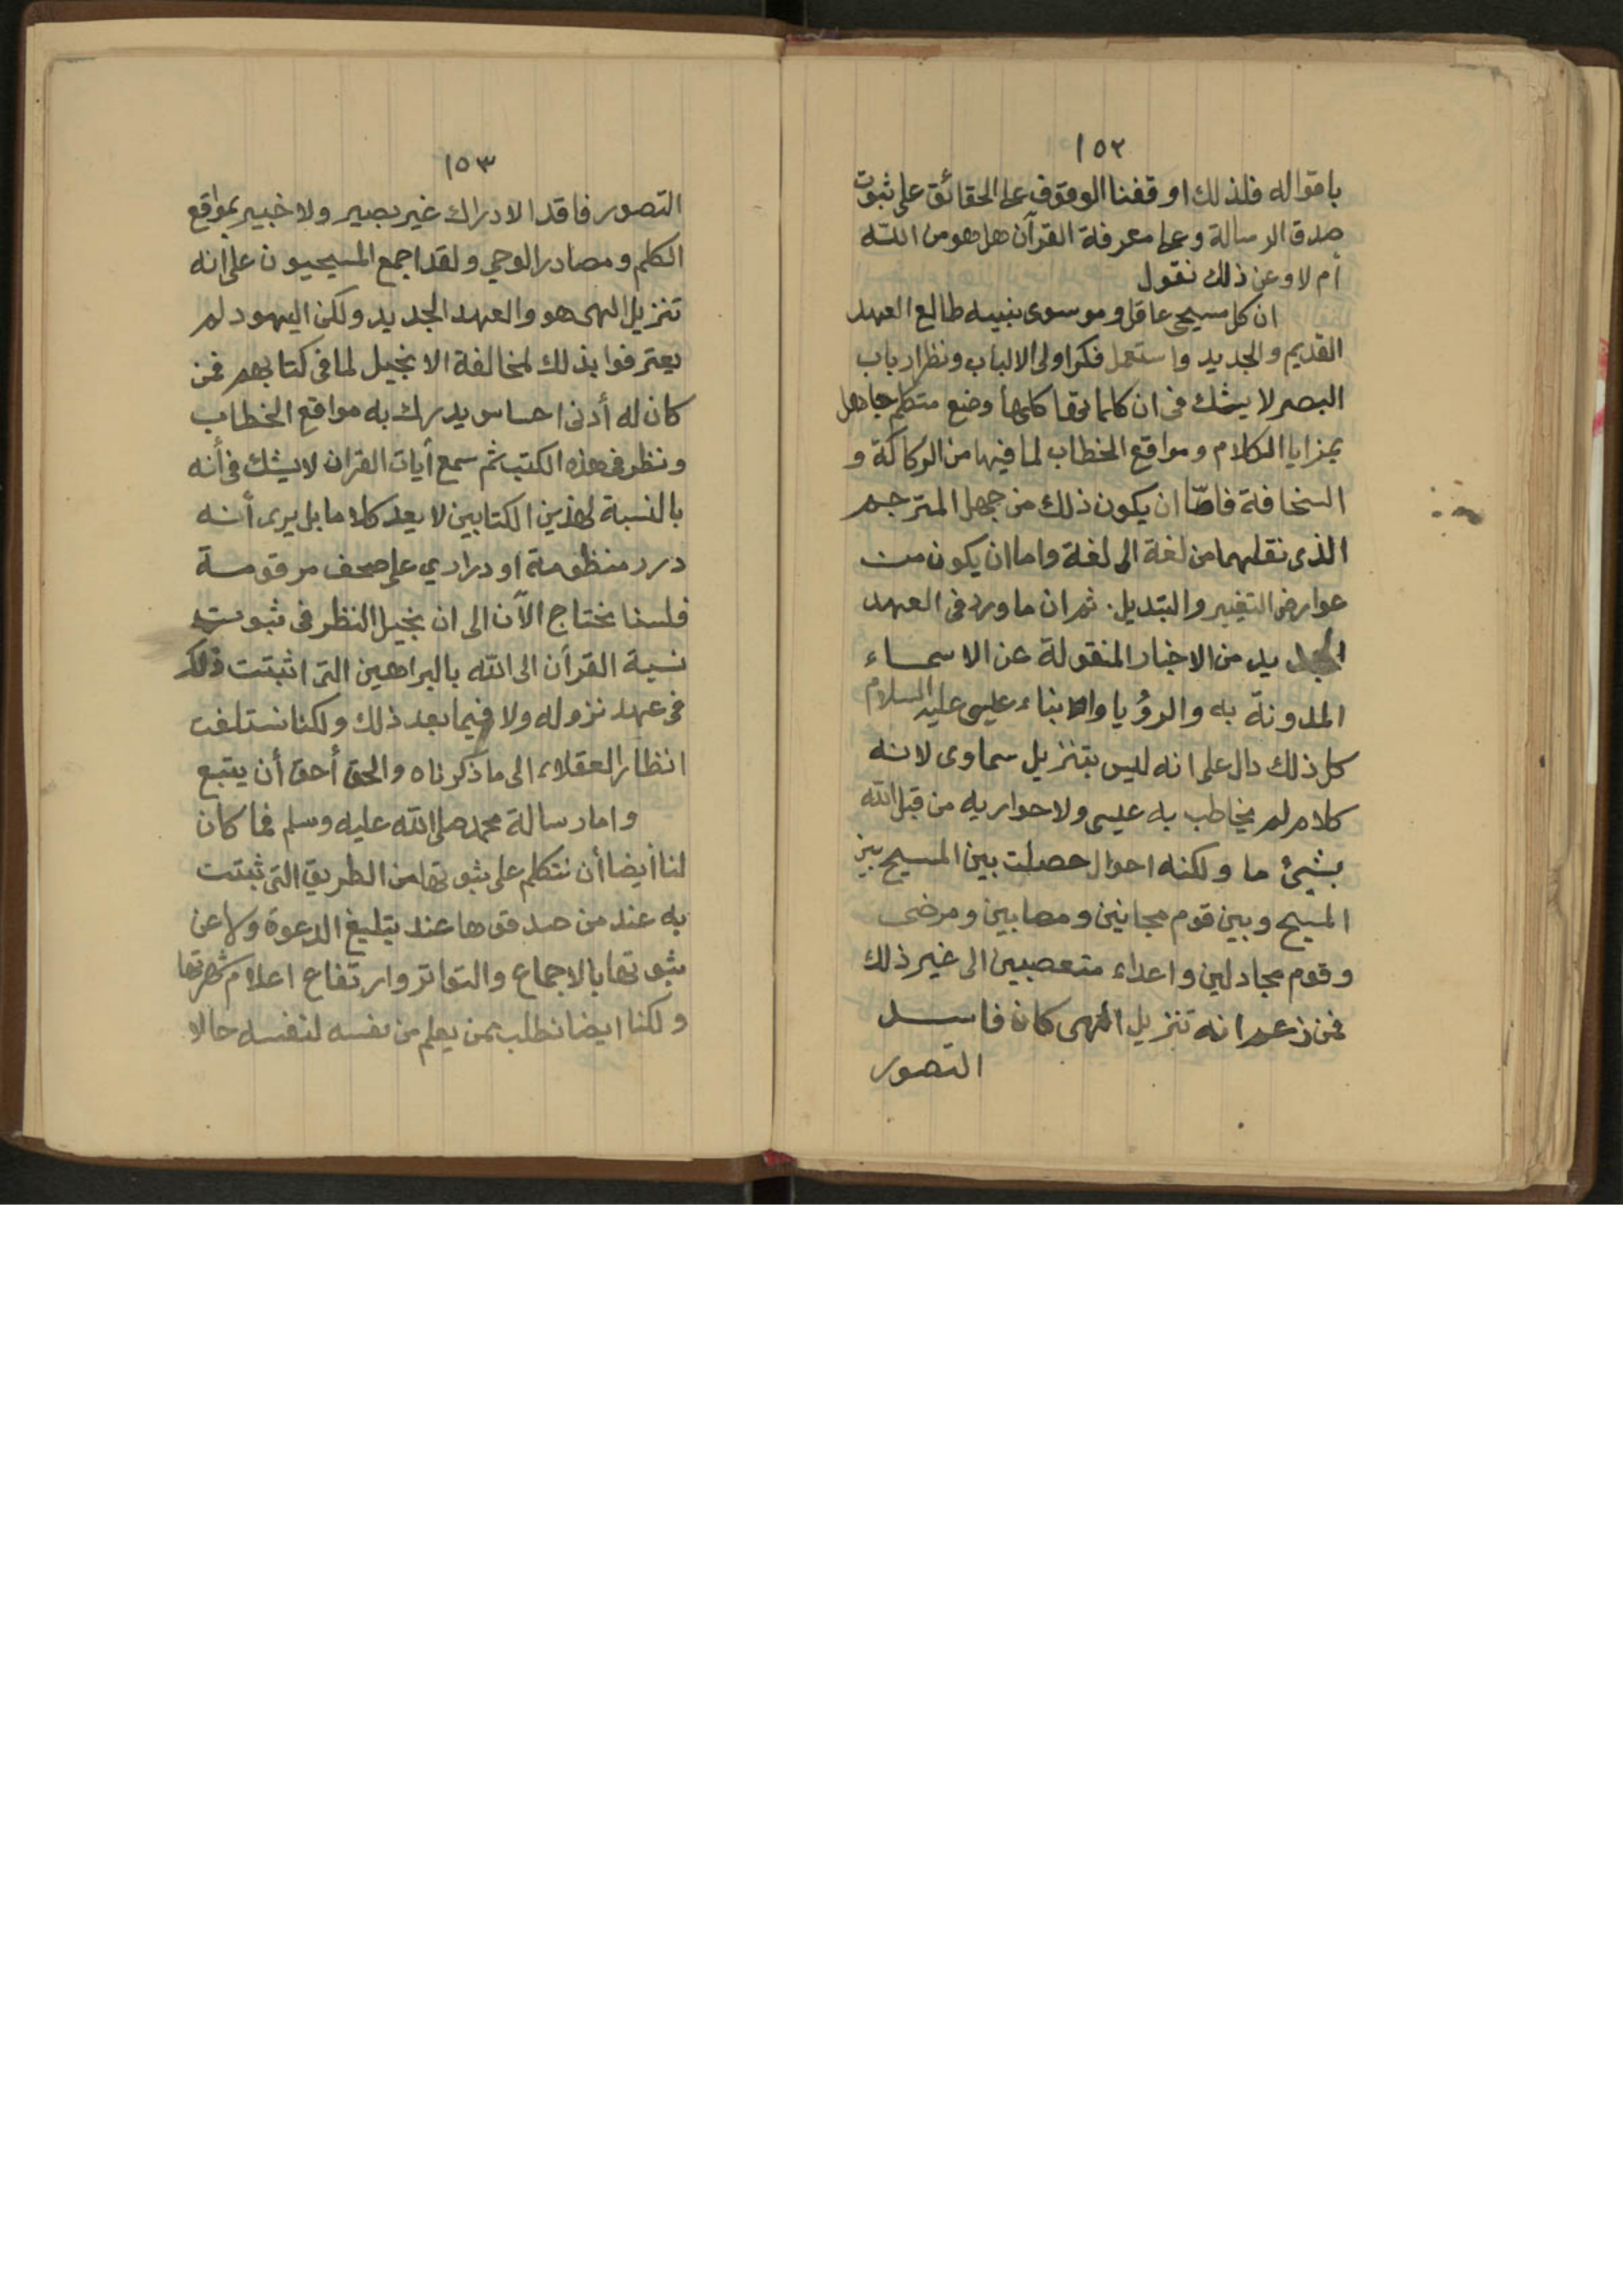 ١٥٢
باقواله فلذلك اوقفنا الوقوف على الحقائق على ثبوت
صدق الرسالة وعلى معرفة القرآن هل هو من الله
أم لا وعن ذلك نقول
ان كل مسيحى عاقل وموسوى نبيه طالع العهد
القديم والجديد واستعمل فكر اولى الالباب ونظر ارباب
البصر لا يشك فى ان كلماتها كلها وضع متكلم جاهل
بمزايا الكلام ومواقع الخطاب لما فيها من الركاكة و
السخافة فامّا ان يكون ذلك من جهل المترجم
الذى نقلهما من لغة الى لغة واما ان يكون من
عوارض التغيير والتبديل. ثم ان ما ورد فى العهد
الجديد من الاخبار المنقولة عن الاسماء
المدونة به والرؤيا والانباء عيسى عليه السلام
كل ذلك دال على انه ليس بتنزيل سماوى لانه
كلام لم يخاطب به عيسى ولا حواريه من قبل الله
بشئ ما ولكنه احوال حصلت بين المسيح بين
المسيح وبين قوم مجانين ومصابين ومرضى
وقوم مجادلين واعداء متعصبين الى غير ذلك
فمن زعم انه تنزيل الهى كان فاسد
التصور
١٥٣
التصور فاقد الادراك غير بصير ولا خبير بمواقع
الكلم ومصادر الوحي ولقد اجمع المسيحيون على انه
تنزيل الهى هو والعهد الجديد ولكن اليهود لم
يعترفوا بذلك لمخالفة الانجيل لما فى كتابهم فمن
كان له أدنى احساس يدرك به مواقع الخطاب
ونظر فى هذه الكتب ثم سمع أيات القران لا يشك فى أنه
بالنسبة لهذين الكتابين لا يعد كلاما بل يرى أنه
درر منظومة او دراري على صحف مرقومة
فلسنا نحتاج الآن الى ان نجيل النظر فى ثبوت
نسبة القرآن الى الله بالبراهين التى اثبتت ذلك
فى عهد نزوله ولا فيما بعد ذلك ولكنا نستلفت
انظار العقلاء الى ما ذكرناه والحق أحق أن يتبع
واما رسالة محمد صلى الله عليه وسلم فما كان
لنا أيضا أن نتكلم على ثبوتها من الطريق التى ثبتت
به عند من صدقوها عند تبليغ الدعوة ولا عن
ثبوتها بالاجماع والتواتر وارتفاع اعلام شهرتها
ولكنا ايضا نطلب ممن يعلم من نفسه لنفسه حالا